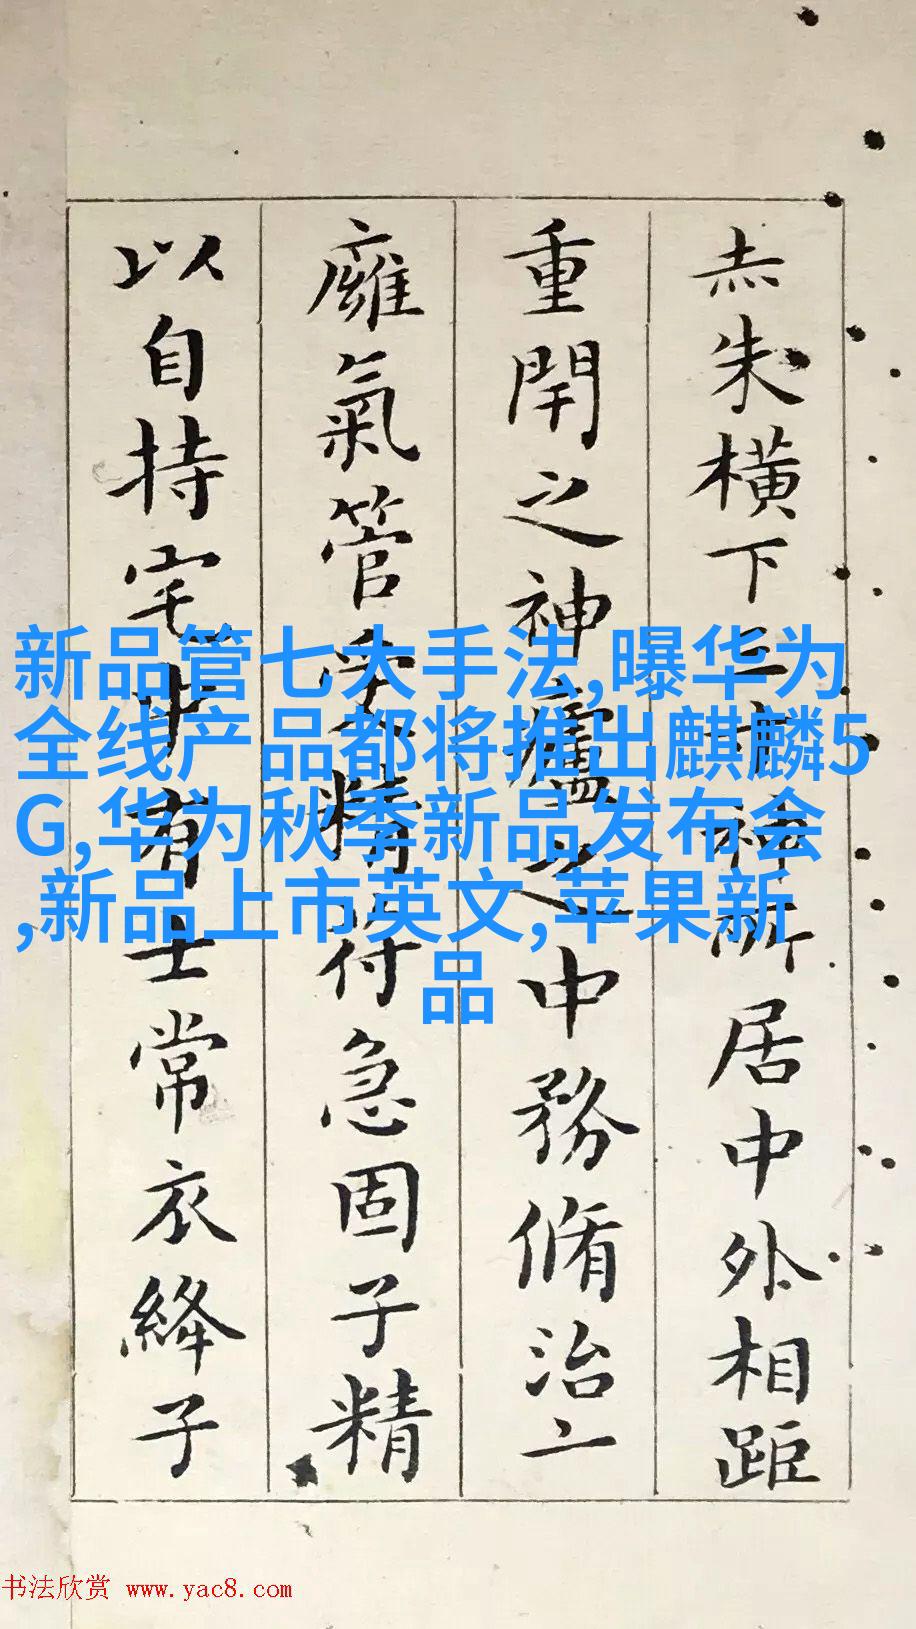 赤朱橫下三寸神所居中外相距
重閇之神廬之中務脩治
廱氣管受精符急固子精
以自持宅中有士常衣絳子
新品管七大手法,曝华为
全线产品都将推出麒麟5
G,华为秋季新品发布会
,新品上市英文,苹果新
品
书法欣赏 www.yac8.com